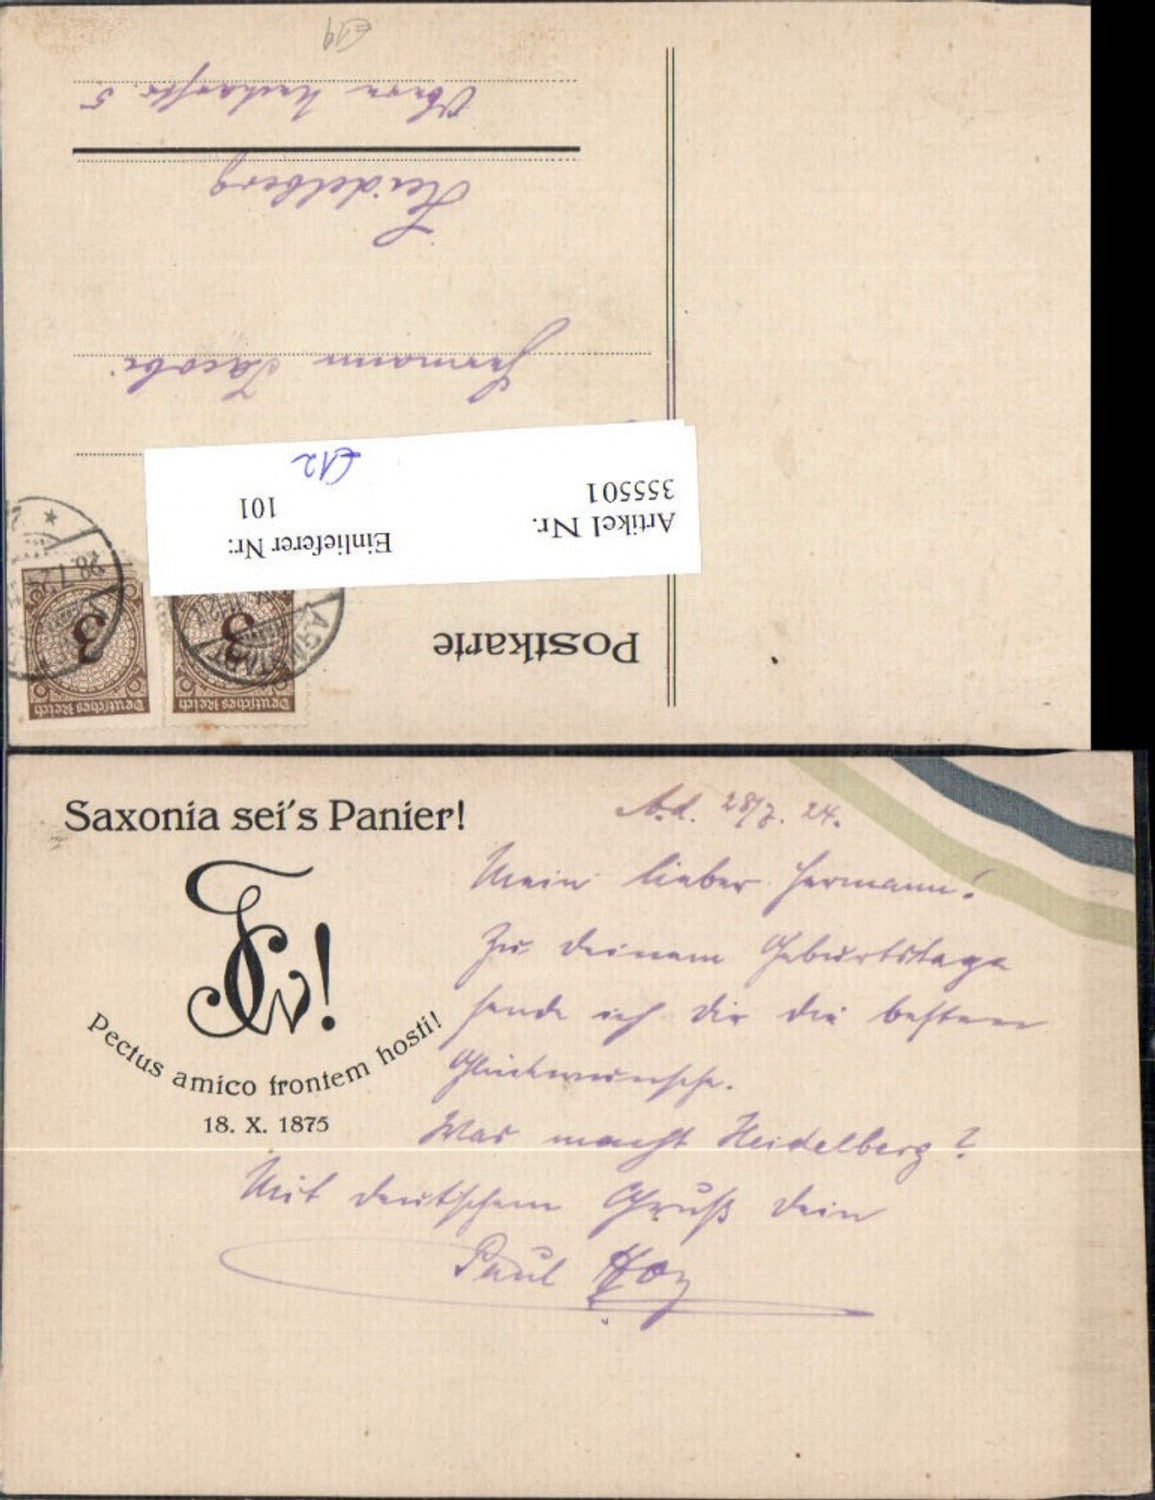 Postkarte
Deutsches Reich
3
Deutsches Reich
3
28.7.24
Artikel Nr.
355501
Einlieferer Nr:
101
£12
Hermann Jacobi
Heidelberg
Obere Neckarstr. 5
£19
Saxonia sei's Panier!
Pectus amico frontem hosti!
18. X. 1875
A.d. 28/7. 24.
Mein lieber Hermann!
Zu deinem Geburtstage
sende ich dir die besten
Glückwünsche.
Was macht Heidelberg?
Mit deutschem Gruß dein
Paul